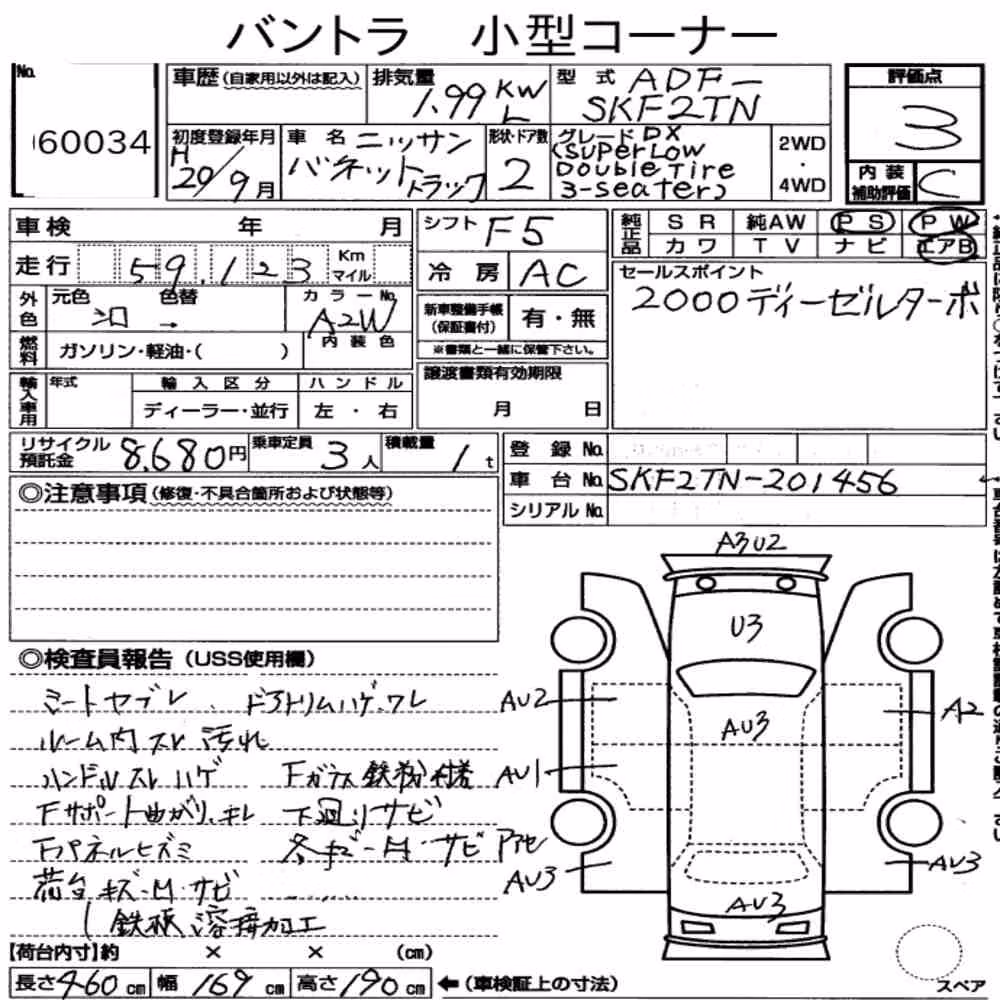 バントラ 小型コーナー
No.
060034
車歴 (自家用以外は記入) 排気量 1.99 KW L 型式 ADF- SKF2TN
評価点
3
初度登録年月 H 20/9月 車名 ニッサン バネットトラック 形状・ドア数 2
グレード DX
(SUPERLOW
DOUBLE TIRE
3-seater)
2WD
・
4WD
内装補助評価 C
車検 年 月
シフト F5
純正品 SR 純AW PS PW
カワ TV ナビ エアB
走行 59,123 Km マイル
冷房 AC
セールスポイント
2000ディーゼルターボ
外色 元色 色替 カラーNo.
シロ → A2W
内装色
新車整備手帳(保証書付) 有・無
※書類と一緒に保管下さい。
燃料 ガソリン・軽油・( )
譲渡書類有効期限
月 日
輸入車用 年式 輸入区分 ハンドル
ディーラー・並行 左・右
リサイクル預託金 8,680円 乗車定員 3人 積載量 1t
登録No.
車台No. SKF2TN-201456
シリアルNo.
◎注意事項 (修復・不具合箇所および状態等)
◎検査員報告 (USS使用欄)
シートヤブレ、ドアトリムハゲ、ワレ
ルーム内スレ 汚れ
ハンドルスレハゲ Fガラス鉄粉付着
Fサポート曲がり、キレ 下廻りサビ
Fパネルヒズミ 各キズ-M・サビ
荷台キズ-M・サビ
鉄板溶接加工
A3U2
U3
AU2
AU3
A2
AU1
AU3
AU3
AU3
【荷台内寸】約 × × (cm)
長さ 460 cm 幅 169 cm 高さ 190 cm ←(車検証上の寸法)
スペア